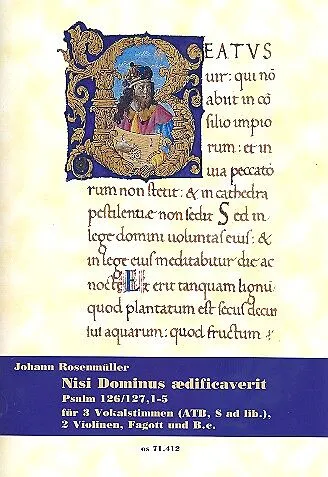 BEATVS
uir: qui nō
abiit in cō
silio impio
rum: et in
uia peccato
rum non stetit: & in cathedra
pestilentiæ non sedit Sed in
lege domini uoluntas eius: &
in lege eius meditabitur die ac
nocte Et erit tanquam lignū
quod plantatum est secus decur
sus aquarum: quod fructum
Johann Rosenmüller
Nisi Dominus ædificaverit
Psalm 126/127,1-5
für 3 Vokalstimmen (ATB, S ad lib.),
2 Violinen, Fagott und B.c.
es 71.412